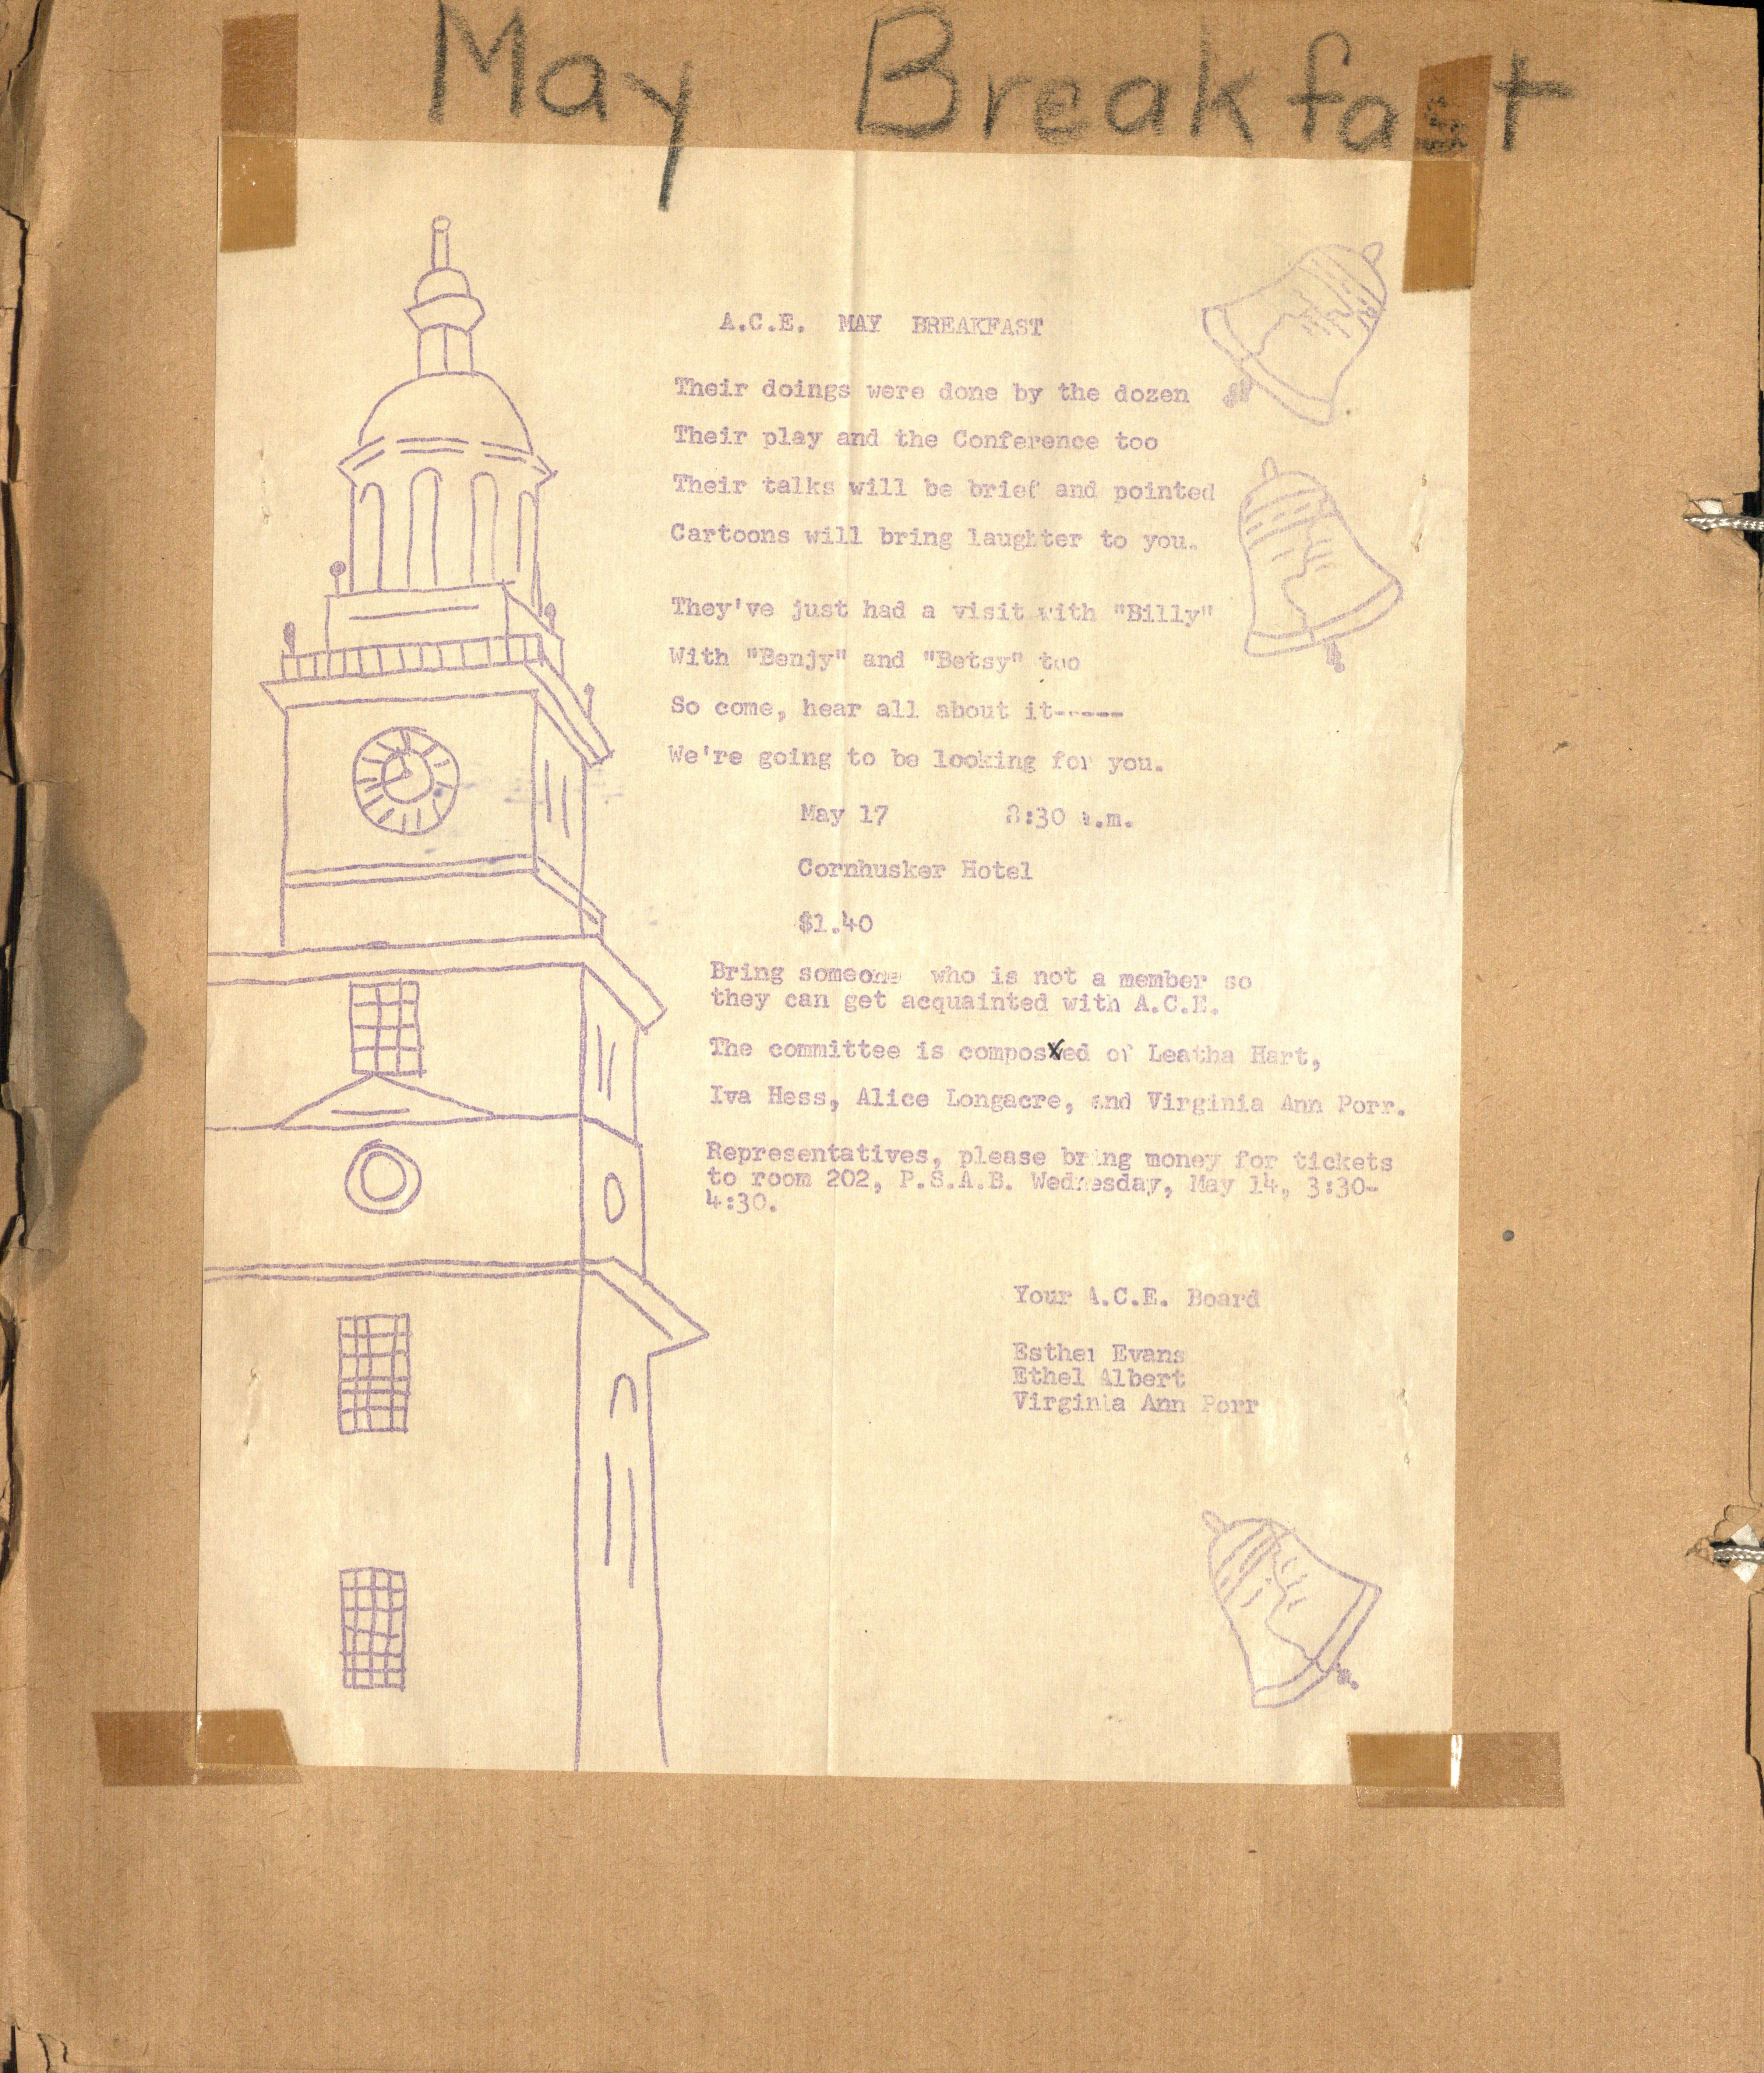 May Breakfast
A.C.E. MAY BREAKFAST
Their doings were done by the dozen
Their play and the Conference too
Their talks will be brief and pointed
Cartoons will bring laughter to you.
They've just had a visit with "Billy"
With "Benjy" and "Betsy" too
So come, hear all about it-----
We're going to be looking for you.
May 17 8:30 a.m.
Cornhusker Hotel
$1.40
Bring someone who is not a member so
they can get acquainted with A.C.E.
The committee is composed of Leatha Hart,
Iva Hess, Alice Longacre, and Virginia Ann Porr.
Representatives, please bring money for tickets
to room 202, P.S.A.B. Wednesday, May 14, 3:30-
4:30.
Your A.C.E. Board
Esther Evans
Ethel Albert
Virginia Ann Porr